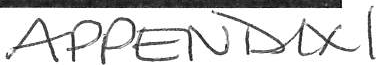 APPENDIX 1